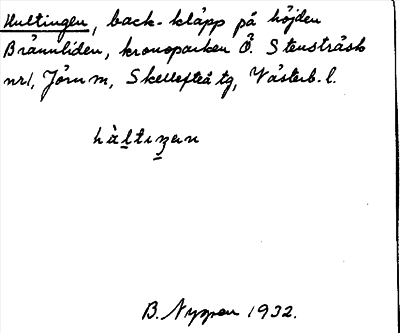 Hultingen, back-kläpp på höjden
Brännliden, kronoparken Ö. Stensträsk
nr1, Jörn m, Skellefteå tg, Västerb. l.
håltıŋən
B. Nygren 1932.